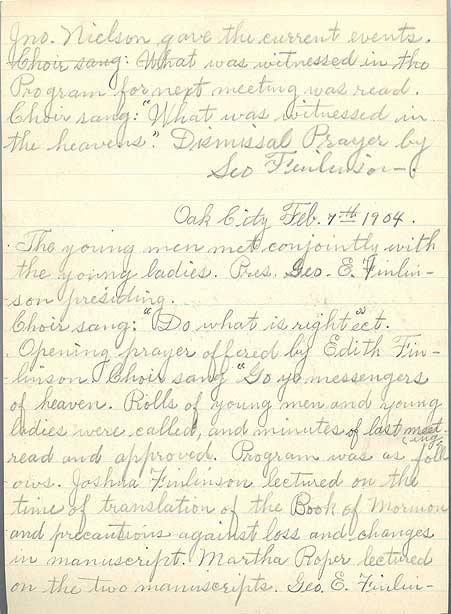 Jno. Nielson gave the current events.
Choir sang: What was witnessed in the
Program for next meeting was read.
Choir sang: "What was witnessed in
the heavens". Dismissal Prayer by
Geo Finlinson.
Oak City Feb. 7th 1904.
The young men met conjointly with
the young ladies. Pres. Geo. E. Finlin-
son presiding.
Choir sang: "Do what is right" ect.
Opening prayer offered by Edith Fin-
linson. Choir sang "Go ye messengers
of heaven. Rolls of young men and young
ladies were called, and minutes of last meet
ing.
read and approved. Program was as foll
ows. Joshua Finlinson lectured on the
time of translation of the Book of Mormon
and precautions against loss and changes
in manuscript. Martha Roper lectured
on the two manuscripts. Geo. E. Finlin-